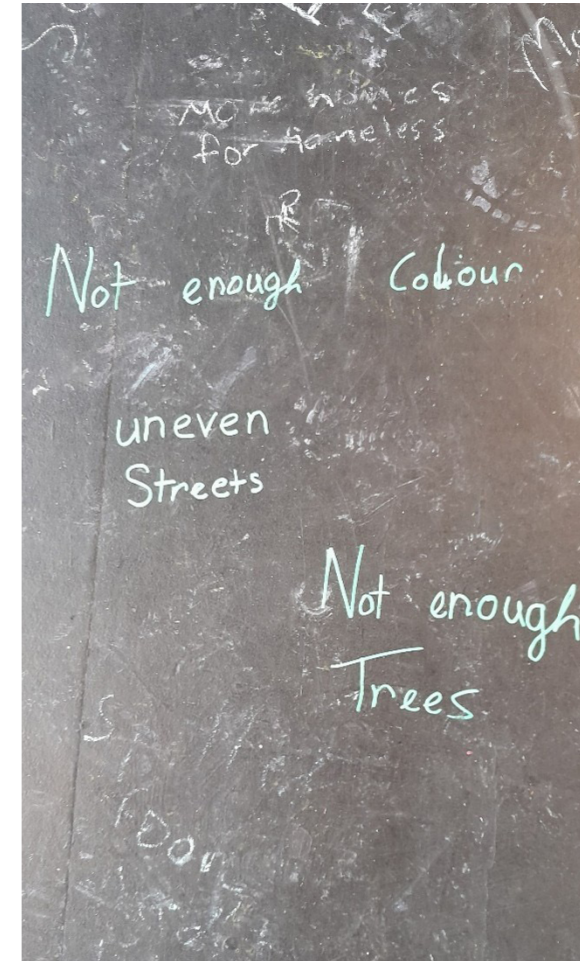 More homes
for homeless
Not enough Colour
uneven
Streets
Not enough
Trees